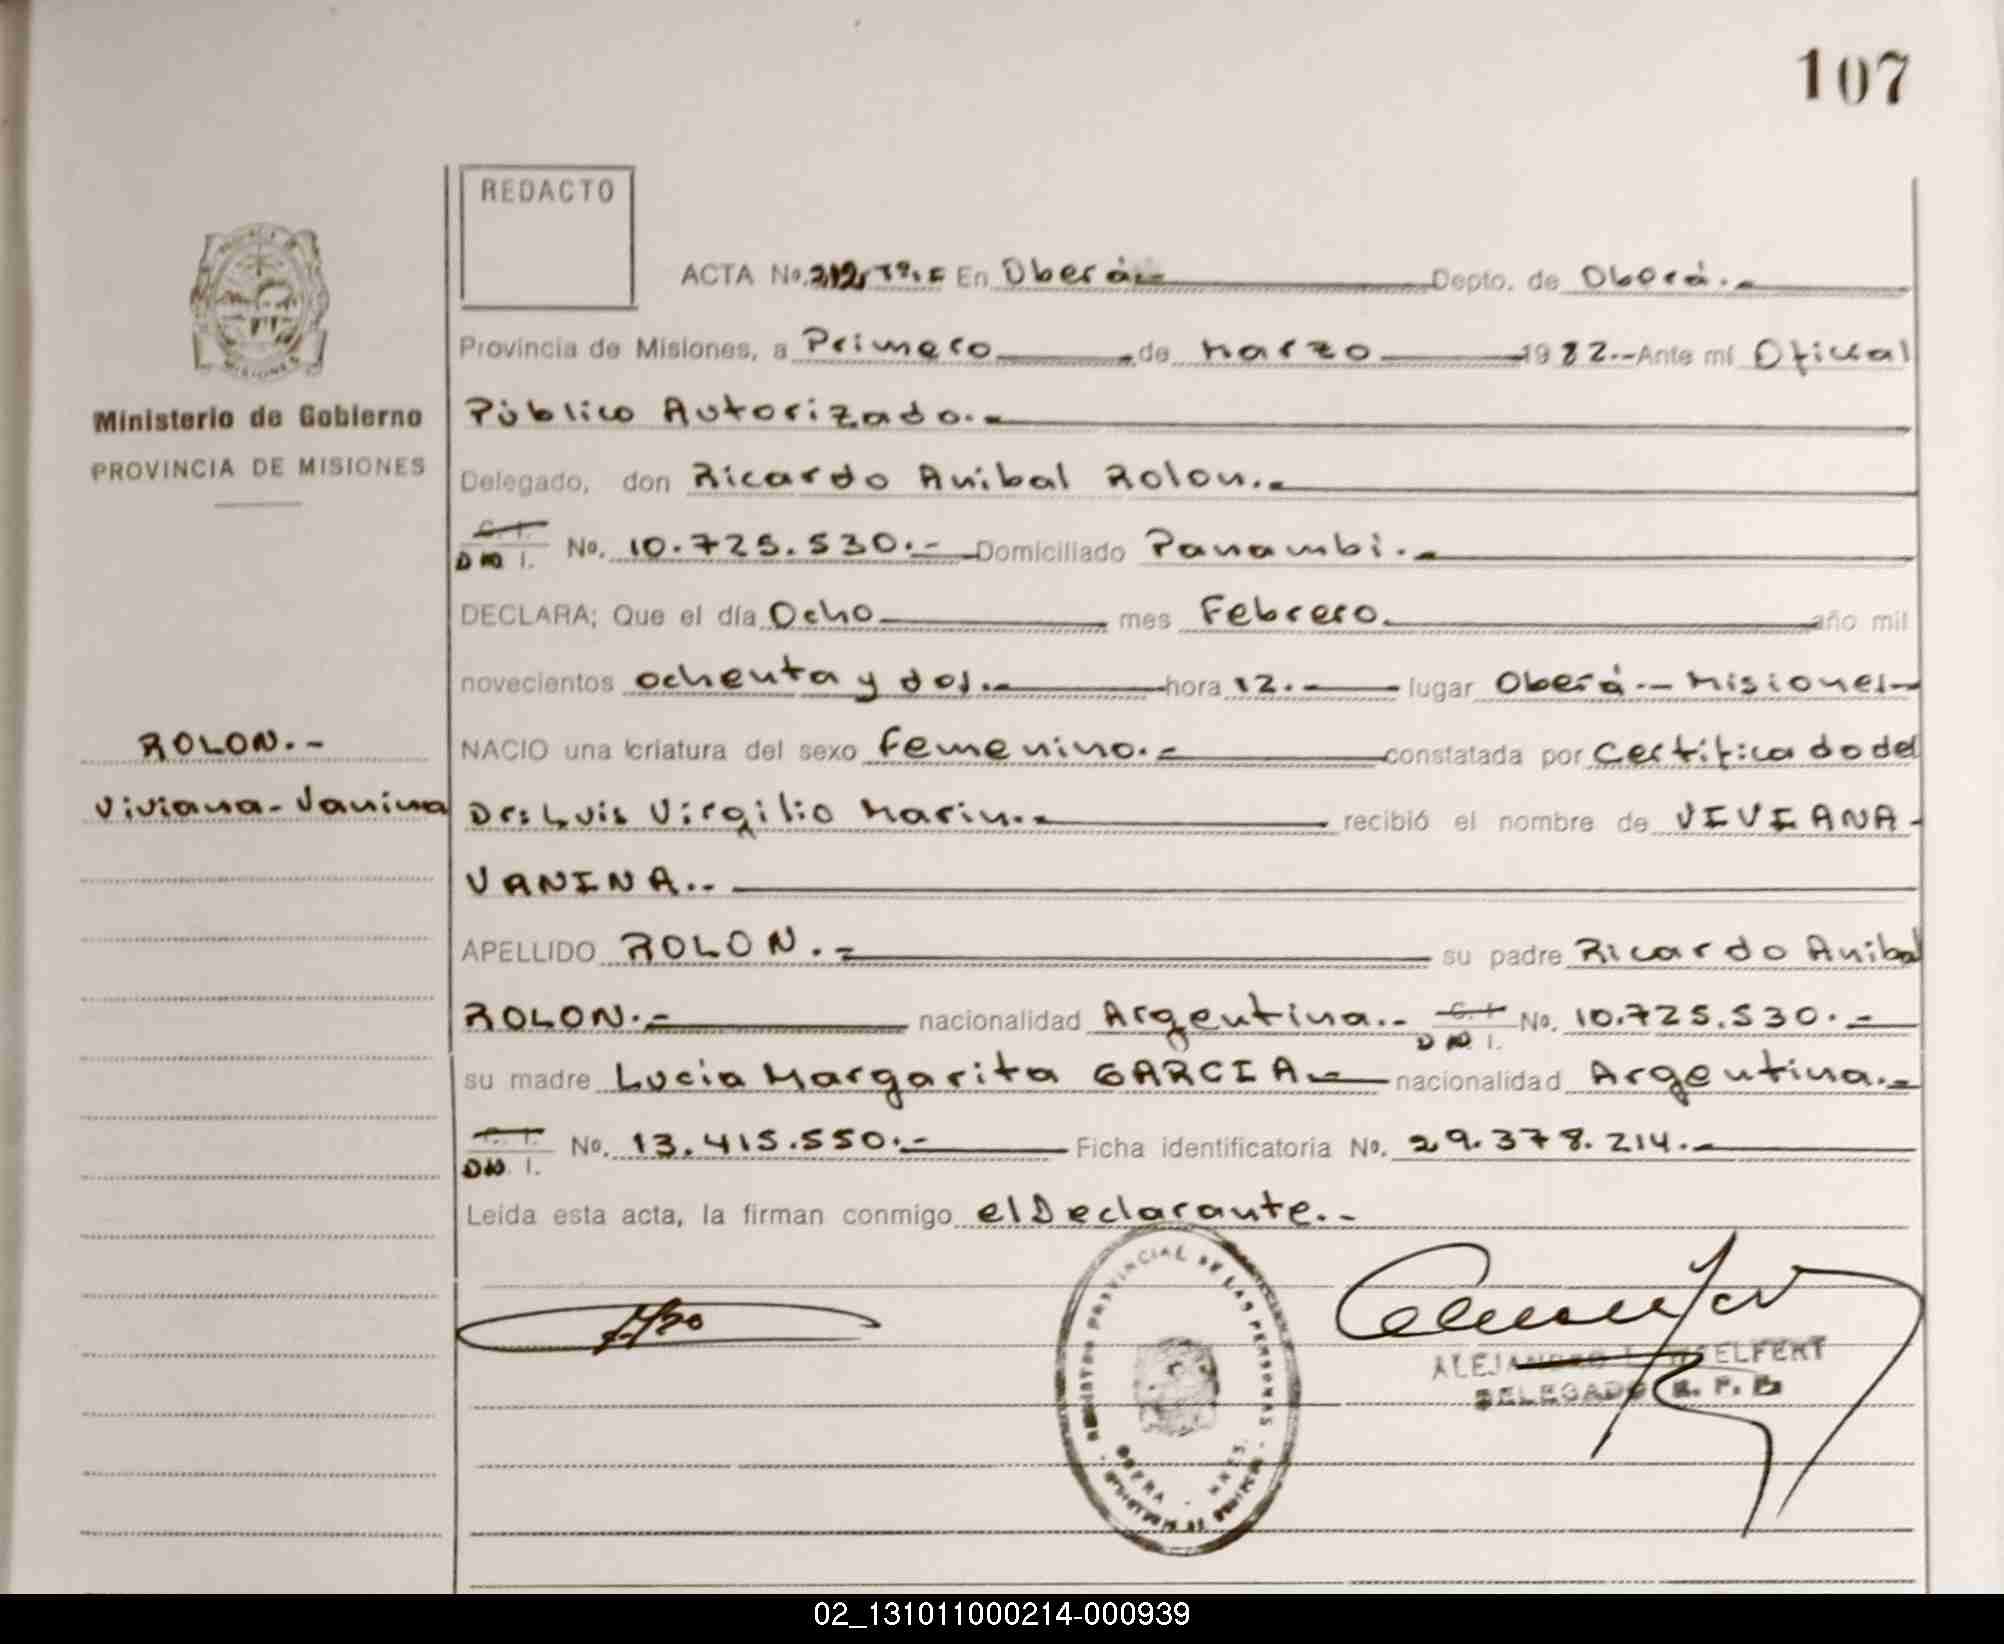 107
REDACTO
ACTA No. 212, Tº. En Oberá.- Depto. de Oberá.-
Provincia de Misiones, a Primero de Marzo 1982.- Ante mí Oficial
Público Autorizado.-
Ministerio de Gobierno
PROVINCIA DE MISIONES
Delegado, don Ricardo Anibal Rolon.-
C. I.
D N I. No. 10.725.530.- Domiciliado Panambi.-
DECLARA; Que el día Ocho mes Febrero. año mil
novecientos ochenta y dos.- hora 12.- lugar Oberá.- Misiones-
ROLON.-
NACIO una criatura del sexo femenino.- constatada por Certificado del
Viviana-Vanina
Dr: Luis Virgilio Marin.- recibió el nombre de VIVIANA-
VANINA..
APELLIDO ROLON.- su padre Ricardo Anibal
ROLON.- nacionalidad Argentina.- C. I. D N I. No. 10.725.530.-
su madre Lucia Margarita GARCIA.- nacionalidad Argentina.-
C. I.
D N I. No. 13.415.550.- Ficha identificatoria No. 29.378.214.-
Leída esta acta, la firman conmigo el Declarante.-
REGISTRO PROVINCIAL DE LAS PERSONAS
OBERA - MNES.
DELEGADO R. P. P.
02_131011000214-000939